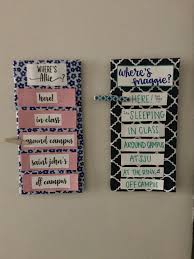 WHERE'S
Allie
here!
in class
around campus
saint john's
off campus
where's
maggie?
HERE!
SLEEPING
IN CLASS
AROUND CAMPUS
AT SJU
AT THE
OFF CAMPUS